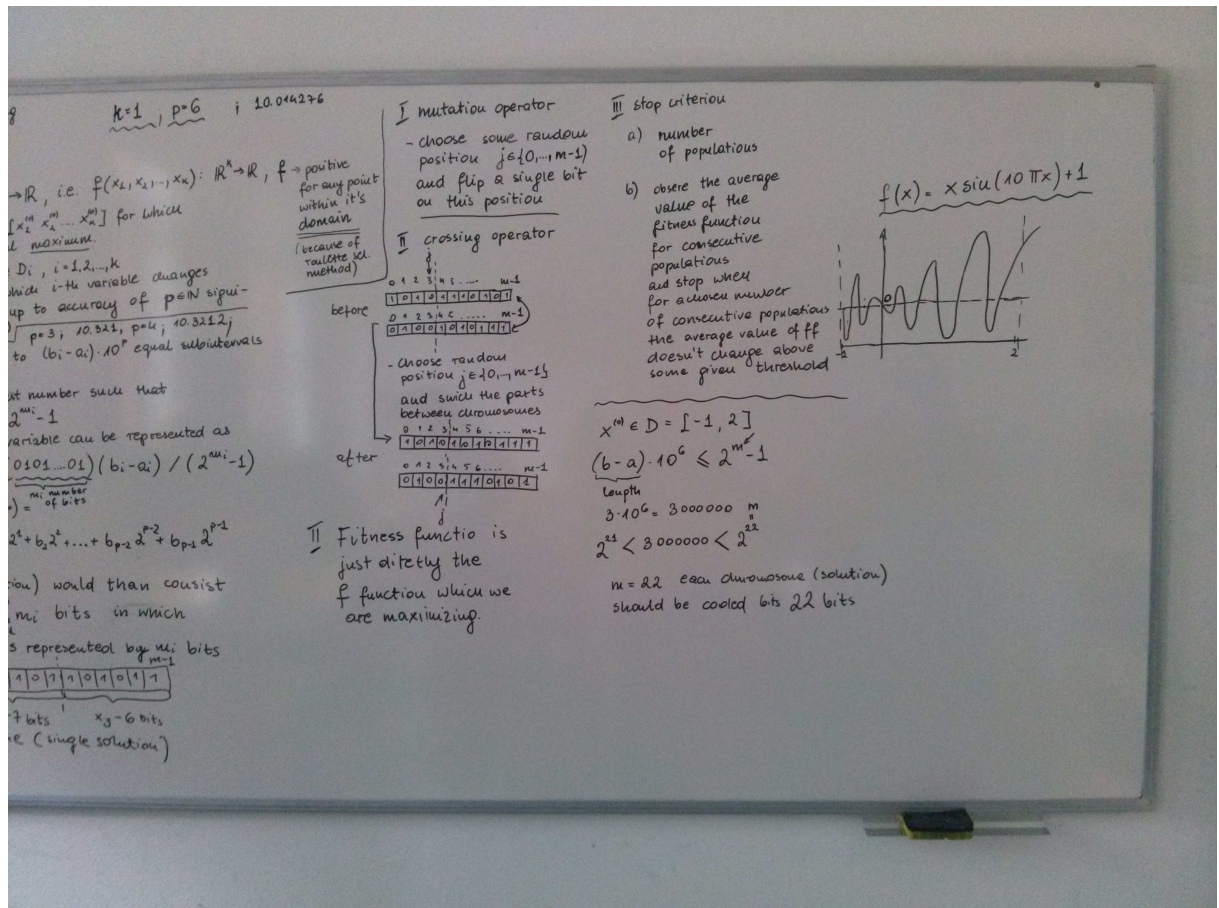 k=1, p=6 ; 10.014276
→ℝ, i.e. f(x₁,x₂,..,xₖ): ℝᵏ→ℝ, f → positive
for any point
within it's
domain
(because of
roulette sel.
method)
for which
maximum.
Dᵢ, i=1,2,..,k
which i-th variable changes
up to accuracy of p∈ℕ signi-
p=3; 10.321, p=4; 10.3212;
to (bᵢ-aᵢ)·10ᵖ equal subintervals
st number such that
2^mᵢ-1
variable can be represented as
(0101...01)(bᵢ-aᵢ)/(2^mᵢ-1)
mᵢ number
of bits
2¹+b₂2²+...+b_{p-2}2^{p-2}+b_{p-1}2^{p-1}
would than consist
mᵢ bits in which
s represented by mᵢ bits
m-1
1|0|1|1|0|1|0|1|1
7 bits x₃-6 bits
e (single solution)
I mutation operator
- choose some random
position j∈{0,..,m-1)
and flip a single bit
on this position
II crossing operator
j
0 1 2 3 4 5 ..... m-1
1 0 1 0 1 1 1 0 1 0 1
before
0 1 2 3 4 5 ..... m-1
0 1 0 0 1 0 1 0 1 1 1
- choose random
position j∈{0,..,m-1}
and swich the parts
between chromosomes
0 1 2 3 4 5 6 .... m-1
1 0 1 0 1 0 1 0 1 1 1
after
0 1 2 3 4 5 6 .... m-1
0 1 0 0 1 1 1 0 1 0 1
j
II Fitness functio is
just dirctly the
f function which we
are maximizing.
III stop criterion
a) number
of populations
b) obsere the average
value of the
fitness function
for consecutive
populations
and stop when
for a chosen number
of consecutive populations
the average value of ff
doesn't change above
some given threshold
x⁽⁰⁾ ∈ D = [-1, 2]
(b-a)·10⁶ ≤ 2ᵐ-1
length
3·10⁶ = 3000000 m
2²¹ < 3000000 < 2²²
m=22 each chromosone (solution)
should be coded bits 22 bits
f(x) = x sin(10πx)+1
0
-1 2